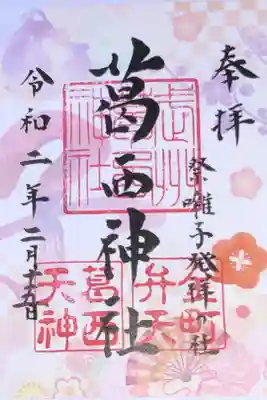 奉拝
祭囃子発祥之社
葛西神社
令和二年二月十五日
金町
弁天
葛西
天神